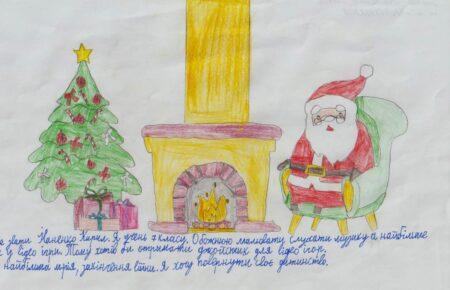 звати Каненко Кирил. Я учень 7 класу. Обожнюю малювати, слухати музику а найбільше
у відео ігри. Тому хотів би отримати джойстик для відео ігор.
найбільша мрія, закінчення війни. Я хочу повернути своє дитинство.